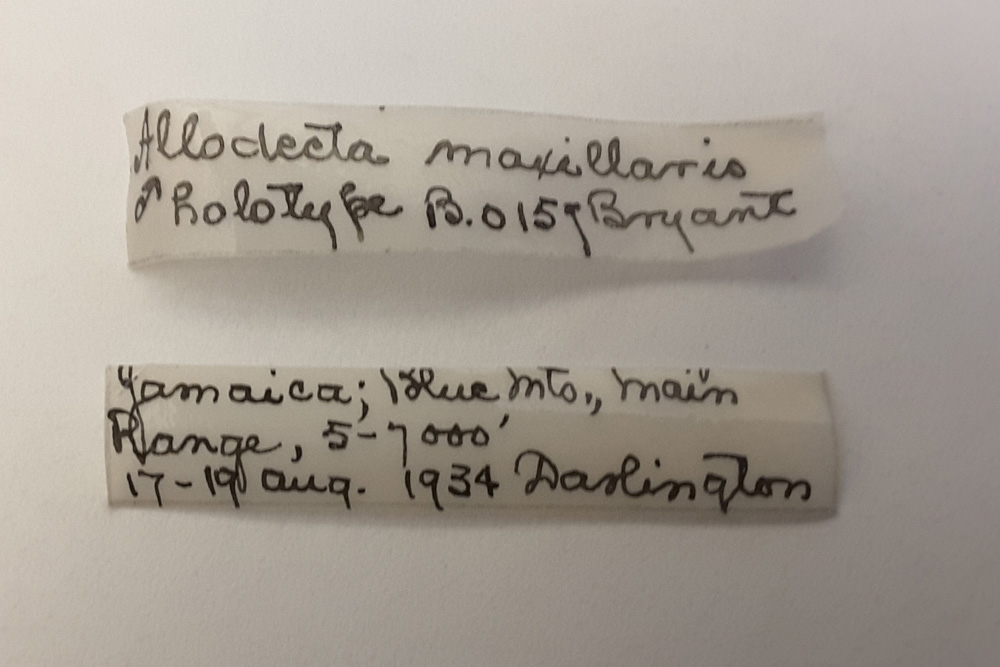 Allodecta maxillaris
♂ holotype B.0159 Bryant
Jamaica; Blue Mts., "main
Range, 5-7000'
17-19 Aug. 1934 Darlington